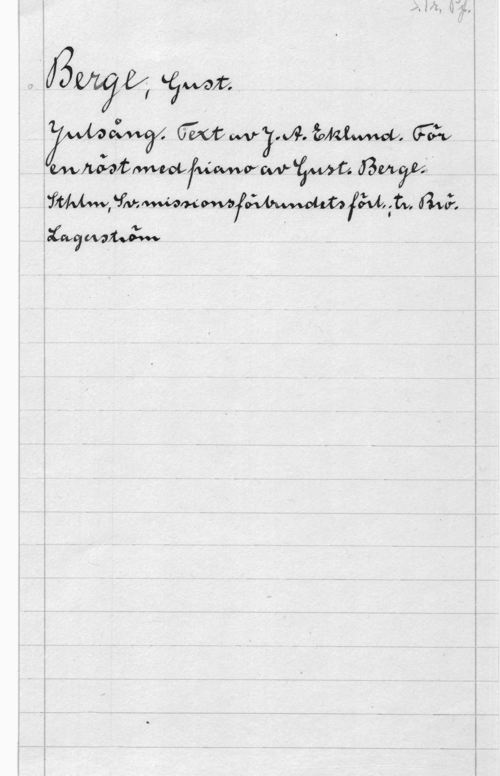 Berge, Gust.
Julsång. Text av J. A. Eklund. För
en röst med piano av Gust. Berge.
Sthlm, Sv. missionsförbundets förl.; tr. Brö.
Lagerström